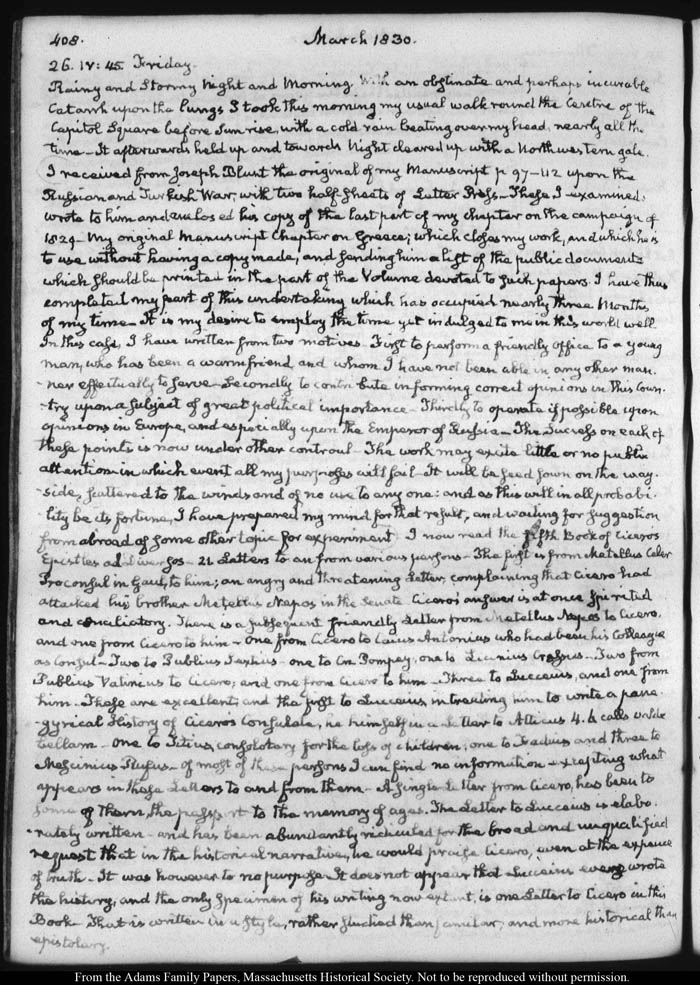 408.
March 1830.
26. IV: 45. Friday.
Rainy and Stormy Night and Morning. With an obstinate and perhaps incurable
Catarrh upon the lungs I took this morning my usual walk round the Centre of the
Capitol Square before Sun rise, with a cold rain beating over my head, nearly all the
time — It afterwards held up and towards Night cleared up with a Northwestern gale.
I received from Joseph Blunt the original of my Manuscript p 97–112 upon the
Russian and Turkish War, with two half sheets of Letter Press — These I examined;
wrote to him and enclosed his copy of the last part of my chapter on the campaign of
1829 — My original Manuscript Chapter on Greece; which closes my work, and which he is
to use without having a copy made, and sending him a list of the public documents
which should be printed in the part of the Volume devoted to such papers. I have thus
completed my part of this undertaking which has occupied nearly three Months
of my time — It is my desire to employ the time yet indulged to me in this world well
In this case, I have written from two motives. First to perform a friendly office to a young
man, who has been a warm friend, and whom I have not been able in any other man-
-ner effectually to serve — Secondly to contribute in forming correct opinions in this Coun-
-try upon a subject of great political importance — Thirdly to operate if possible upon
opinions in Europe, and especially upon the Emperor of Russia — The Success on each of
these points is now under other controul — The work may excite little or no public
attention in which event all my purposes will fail — It will be seed sown on the way-
-side, scattered to the winds and of no use to any one: and as this will in all probabi-
-lity be its fortune, I have prepared my mind for that result, and waiting for suggestion
from abroad of some other topic for experiment I now read the fifth Book of Ciceros
Epistles ad diversos — 21 Letters to an from various persons — The first is from Metellus Celer
Proconsul in Gaul, to him; an angry and threatening Letter, complaining that Cicero had
attacked his brother Metellus Nepos in the Senate Cicero's answer is at once spirited
and conciliatory. There is a subsequent friendly Letter from Metellus Nepos to Cicero,
and one from Cicero to him — One from Cicero to Caius Antonius who had been his Colleague
as Consul — Two to Publius Sextius — one to Cn. Pompey, one to Licinius Crassus — Two from
Publius Vatinius to Cicero; and one from Cicero to him — Three to Lucceius, and one from
him — These are excellent; and the first to Lucceius intreating him to write a pane-
-gyrical History of Ciceros Consulate, he himself in a Letter to Atticus 4. 6 calls valde
bellam — One to Titius, consolotary for the loss of children; one to Fadius and three to
Mescinius Rufus — of most of these persons I can find no information excepting what
appears in these Letters to and from them — A single Letter from Cicero, has been to
some of them, the passport to the memory of ages. The Letter to Lucceius is elabo-
-rately written — and has been abundantly ridiculed for the broad and unqualified
request that in the historical narrative, he would praise Cicero, even at the expence
of truth — It was however to no purpose It does not appear that Lucceius ever wrote
the history, and the only specimen of his writing now extant, is one Letter to Cicero in this
Book — That is written in a style, rather studied than familiar, and more historical than
epistolary.
From the Adams Family Papers, Massachusetts Historical Society. Not to be reproduced without permission.